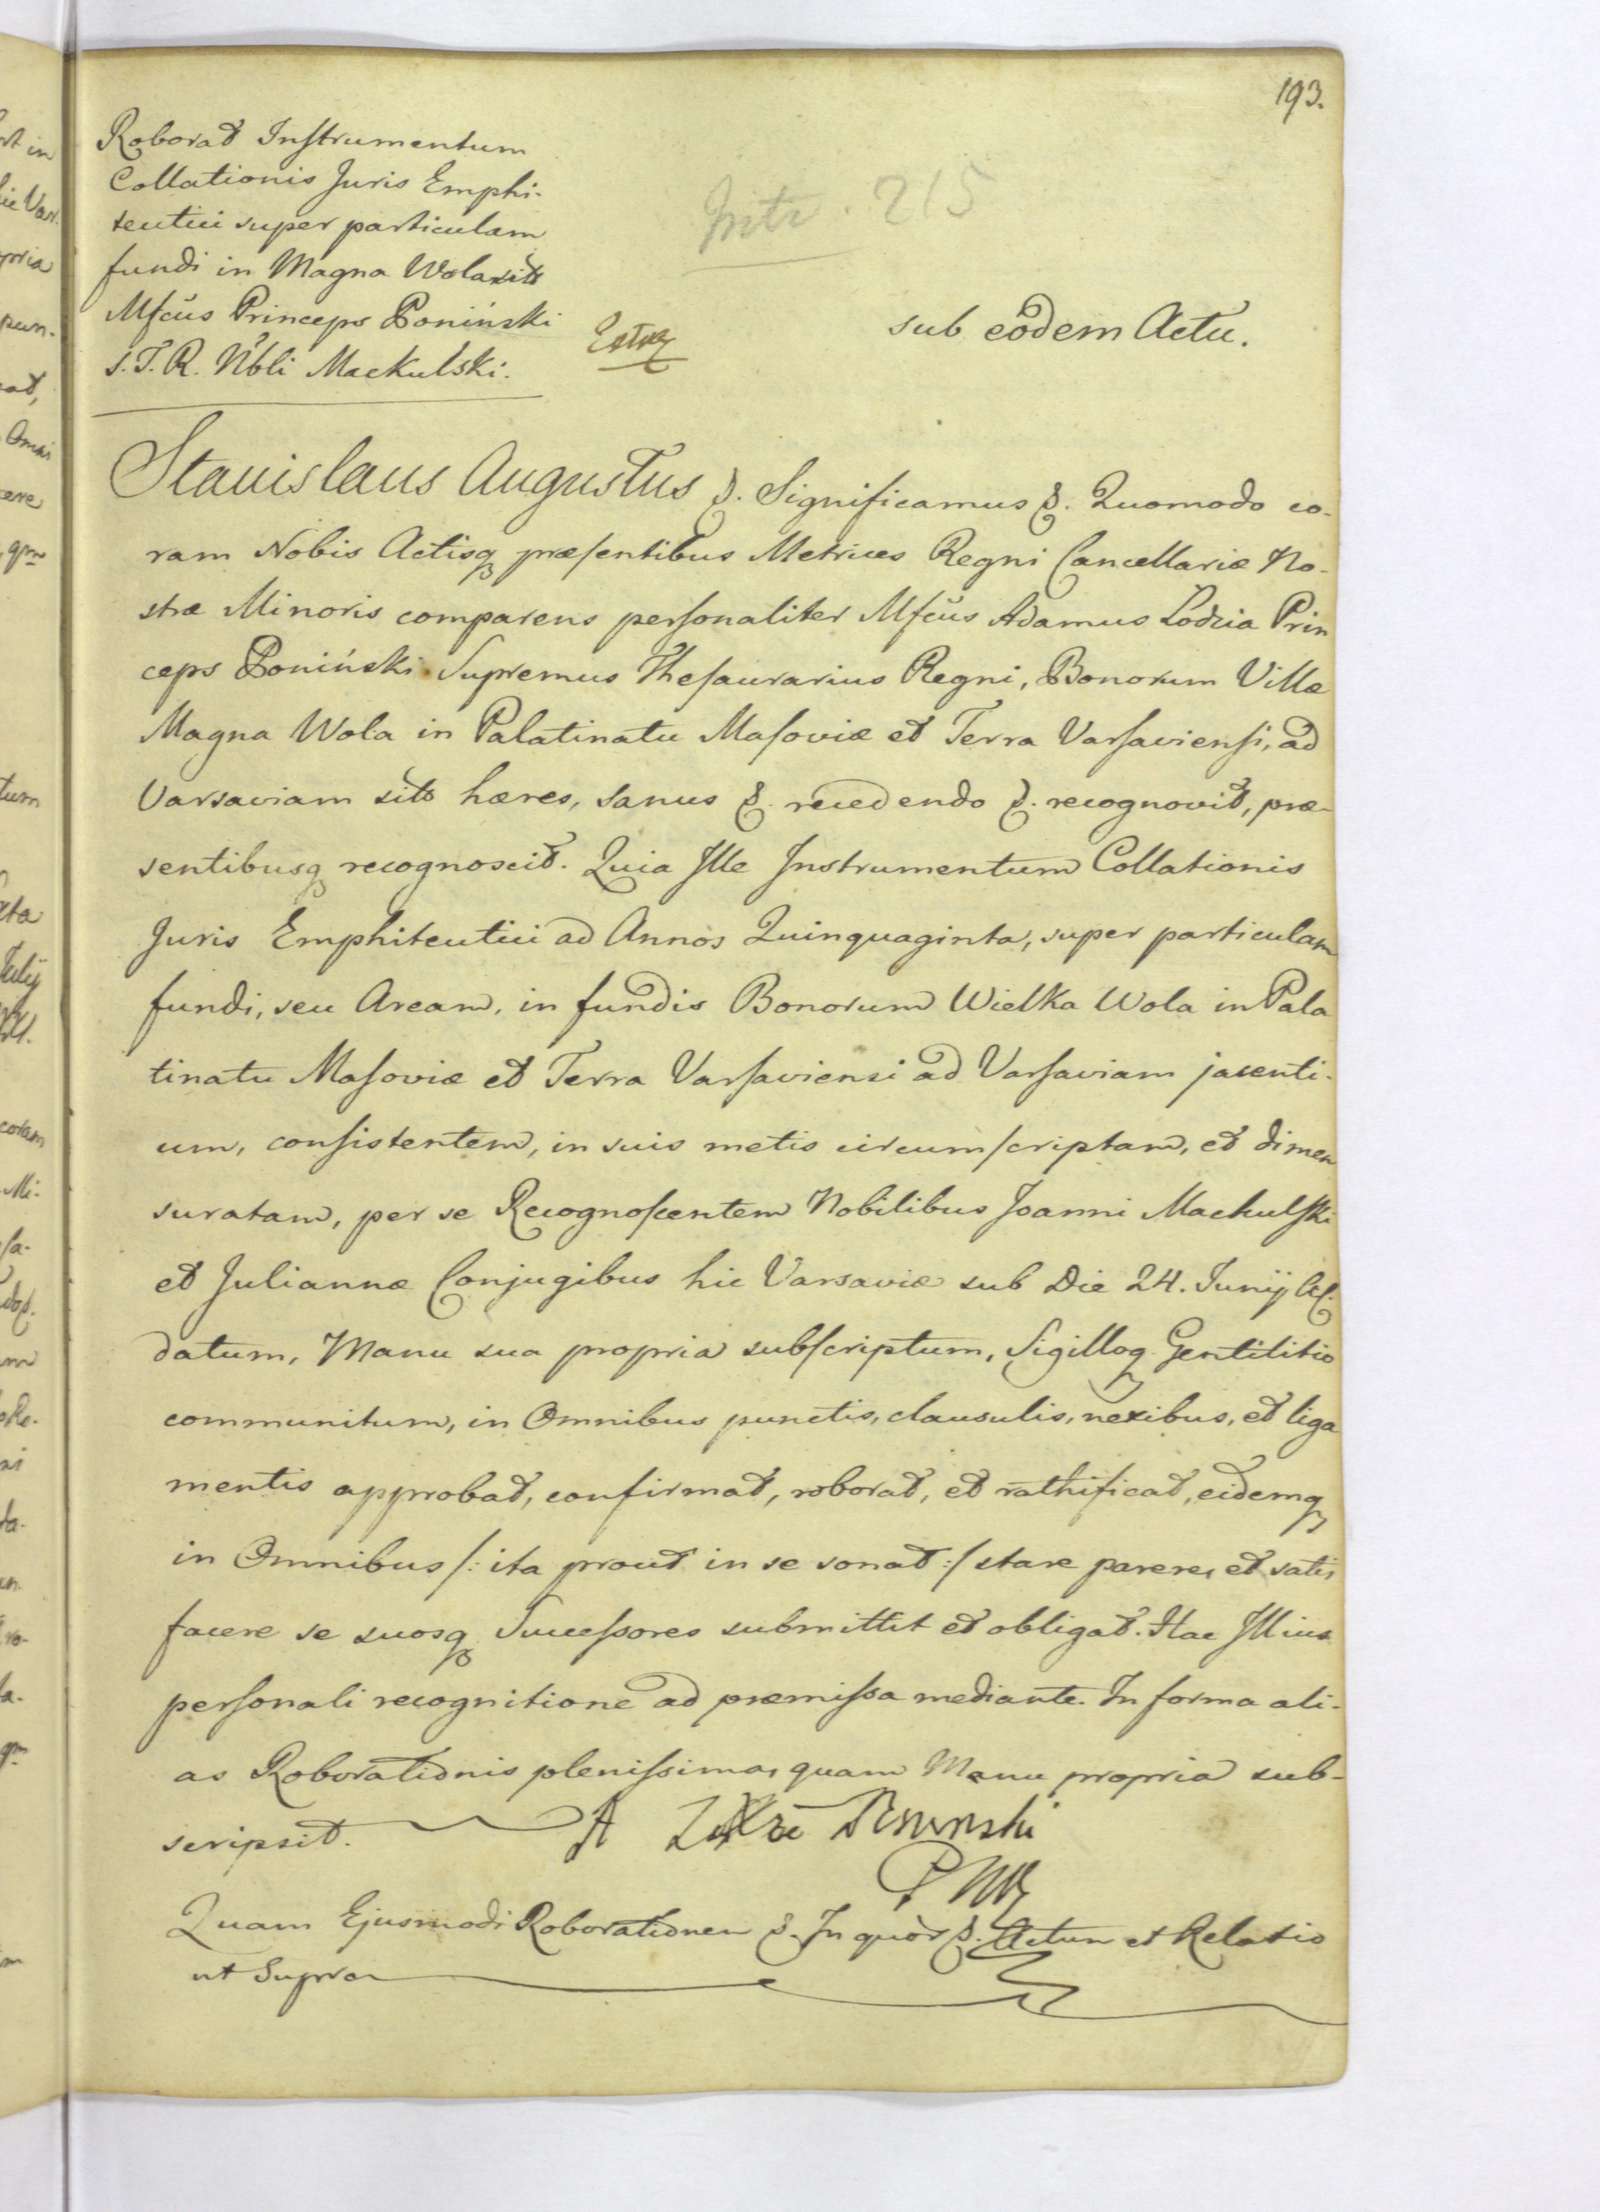 193.
Roborat Instrumentum
Collationis Juris Emphi-
teutici super particulam
fundi in Magna Wola sit
Mfcus Princeps Poniński
S.T.R. Nbli Mackulski.
Intr. 215
Extra
sub eodem Actu.
Stanislaus Augustus &. Significamus &. Quomodo co-
ram Nobis Actisq præsentibus Metrices Regni Cancellariæ No-
stræ Minoris comparens personaliter Mfcus Adamus Lodzia Prin
ceps Poniński Supremus Thesaurarius Regni, Bonorum Villæ
Magna Wola in Palatinatu Masoviæ et Terra Varsaviensi, ad
Varsaviam sit hæres, sanus &. recedendo &. recognovit, præ-
sentibusq recognoscit. Quia Ille Instrumentum Collationis
Juris Emphiteutici ad Annos Quinquaginta, super particulam
fundi, seu Aream, in fundis Bonorum Wielka Wola in Pala
tinatu Masoviæ et Terra Varsaviensi ad Varsaviam jacenti-
um, consistentem, in suis metis circumscriptam, et dimen
suratam, per se Recognoscentem Nobilibus Joanni Mackulski
et Juliannæ Conjugibus hic Varsaviæ sub Die 24. Junij
datum, Manu sua propria subscriptum, Sigilloq Gentilitio
communitum, in Omnibus punctis, clausulis, nexibus, et liga
mentis approbat, confirmat, roborat, et rathificat, eidemq
in Omnibus /: ita prout in se sonat :/ stare parere, et satis
facere se suosq Successores submittit et obligat. Hac Illius
personali recognitione ad præmissa mediante. In forma ali-
as Roborationis plenissima, quam Manu propria sub-
scripsit. A Poninski
Quam Ejusmodi Roborationem &. In quor &. Actum et Relatio
ut Supra